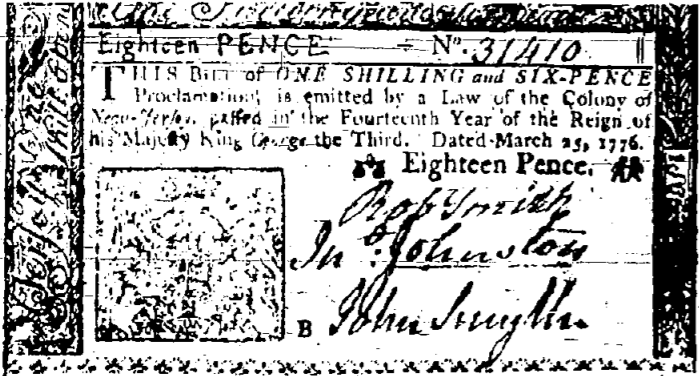 Eighteen PENCE No. 31410
THIS Bill of ONE SHILLING and SIX-PENCE
Proclamation, is emitted by a Law of the Colony of
New-Jersey, passed in the Fourteenth Year of the Reign of
his Majesty King George the Third. Dated March 25, 1776.
Eighteen Pence.
Robt Smith
Jno. Johnston
B John Smyth